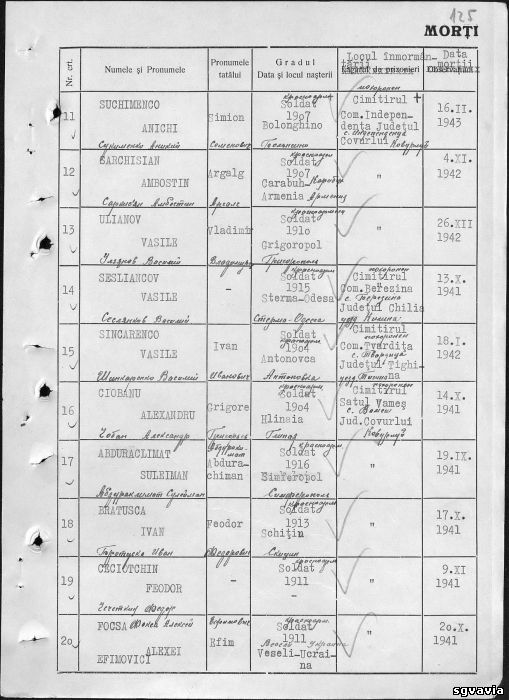 125
MORȚI
Nr. crt.
Numele și Pronumele
Pronumele tatălui
Gradul
Data și locul nașterii
Locul înmormân-
tării
Data
morții
11
SUCHIMENCO
ANICHI
Сухименко Аникий
Simion
Семенович
красноарм
Soldat
1907
Bolonghino
похоронен
Cimitirul +
Com.Indepen-
denta Județul
с. Индепенденца
Covurlui
16.II.
1943
12
SARCHISIAN
AMBOSTIN
Саркисян Амбостин
Argalg
красноарм
Soldat
1907
Carabuh-
Armenia
Армения
"
4.XI.
1942
13
ULIANOV
VASILE
Ульянов Василий
Vladimir
Владимир
красноармеец
Soldat
1910
Grigoropol
Григорополь
"
26.XII
1942
14
SESLIANCOV
VASILE
Сеслянков Василий
-
красноарм
Soldat
1915
Sterma-Odesa
Стерма-Одесса
похоронен
Cimitirul
Com.Beresina
с. Березина
Județul Chilia
уезд Килия
13.X.
1941
15
SINCARENCO
VASILE
Шинкаренко Василий
Ivan
Иванович
Soldat
красноарм
1904
Antonovca
Антоновка
Cimitirul
похоронен
Com.Tvardița
с. Твардица
Județul Tighi-
na
18.I.
1942
16
CIOBANU
ALEXANDRU
Чобан Александр
Grigore
красноарм
Soldat
1904
Hlinaia
похоронен
Cimitirul
Satul Vameș
с. Вамеш
Jud.Covurlui
Ковурлуй
14.X.
1941
17
ABDURACLIMAT
SULEIMAN
Абдураклимат Сулейман
Abdura-
chiman
красноарм
Soldat
1916
Simferopol
Симферополь
"
19.IX.
1941
18
BRATUSCA
IVAN
Feodor
Федорович
красноарм
Soldat
1913
Schițin
Скицин
"
17.X.
1941
19
CECIOTCHIN
FEODOR
-
красноарм
Soldat
1911
-
"
9.XI
1941
20
FOCSA Фокса Алексей
ALEXEI
EFIMOVICI
Ефимович
Efim
красноарм
Soldat
1911
Весели Украина
Veseli-Ucrai-
na
"
20.X.
1941
sgvavia